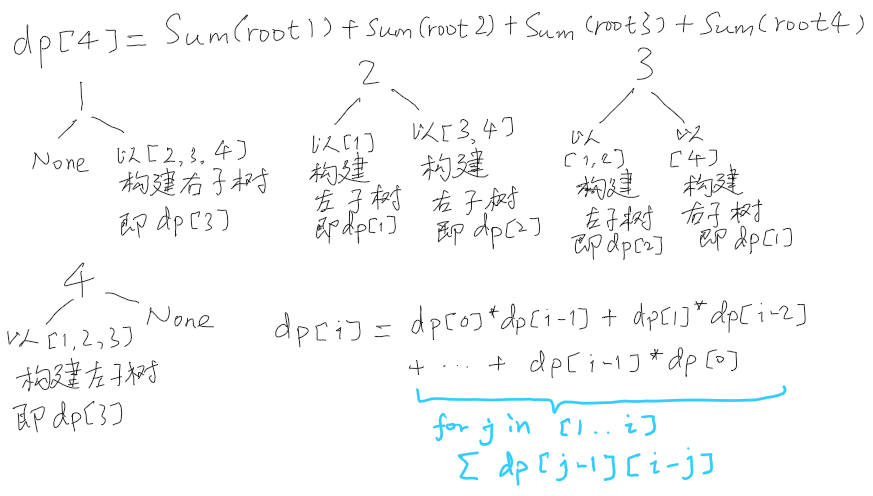 dp[4] = Sum(root1) + Sum(root2) + Sum(root3) + Sum(root4)
1
None
以[2,3,4]
构建右子树
即dp[3]
2
以[1]
构建
左子树
即dp[1]
以[3,4]
构建
右子树
即dp[2]
3
以
[1,2]
构建
左子树
即dp[2]
以
[4]
构建
右子树
即dp[1]
4
以[1,2,3]
构建左子树
即dp[3]
None
dp[i] = dp[0]*dp[i-1] + dp[1]*dp[i-2]
+ ... + dp[i-1]*dp[0]
for j in [1..i]
Σ dp[j-1][i-j]